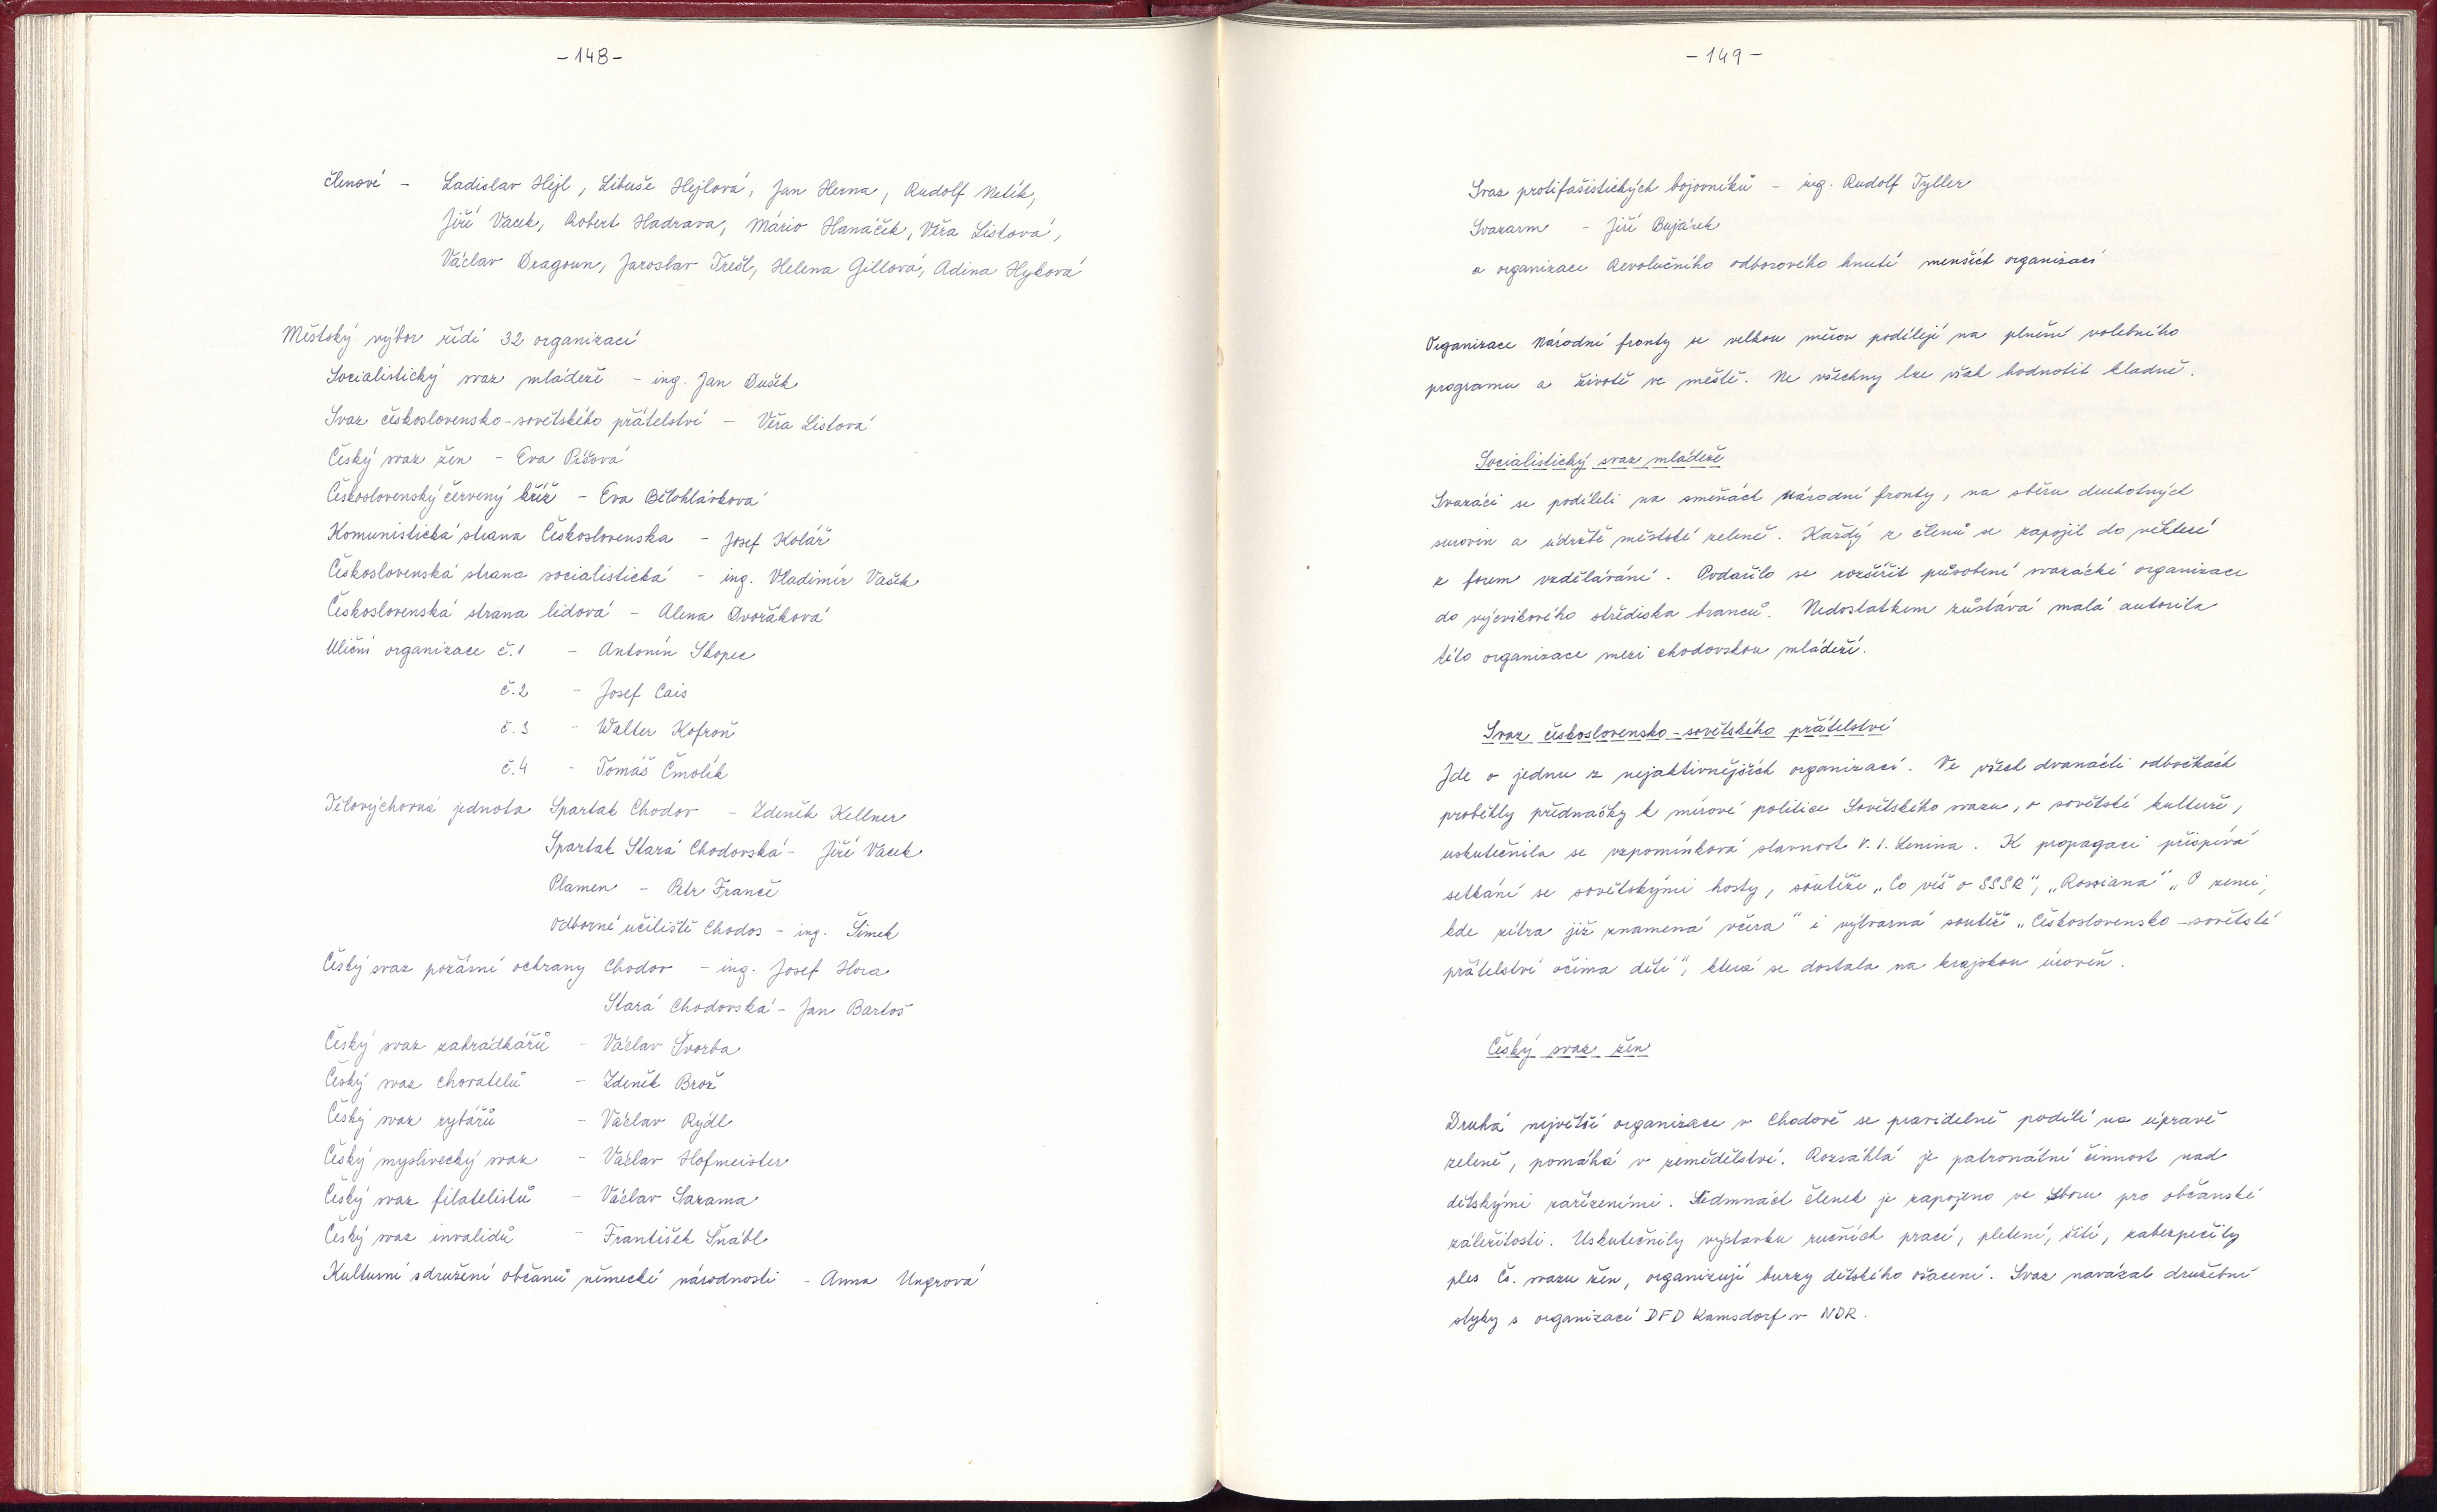 -148-
členové - Ladislav Hejl, Libuše Hejlová, Jan Herna, Rudolf Netík,
Jiří Vacek, Robert Hadrava, Mário Hanáček, Věra Listová,
Václav Dragoun, Jaroslav Trešl, Helena Gillová, Adina Hyková
Městský výbor řídí 32 organizací
Socialistický svaz mládeže - ing. Jan Dušek
Svaz československo-sovětského přátelství - Věra Listová
Český svaz žen - Eva Píšová
Československý červený kříž - Eva Bělohlávková
Komunistická strana Československa - Josef Kolář
Československá strana socialistická - ing. Vladimír Vašek
Československá strana lidová - Alena Dvořáková
Uliční organizace č.1 - Antonín Skopec
č.2 - Josef Cais
č.3 - Walter Kofroň
č.4 - Tomáš Čmolík
Tělovýchovná jednota Spartak Chodov - Zdeněk Kellner
Spartak Stará Chodovská - Jiří Vacek
Plamen - Petr Franče
Odborné učiliště Chodos - ing. Šimek
Český svaz požární ochrany Chodov - ing. Josef Hora
Stará Chodovská - Jan Bartoš
Český svaz zahrádkářů - Václav Svorba
Český svaz chovatelů - Zdeněk Brož
Český svaz rybářů - Václav Rýdl
Český myslivecký svaz - Václav Hofmeister
Český svaz filatelistů - Václav Sarama
Český svaz invalidů - František Šnábl
Kulturní sdružení občanů německé národnosti - Anna Ungrová
-149-
Svaz protifašistických bojovníků - ing. Rudolf Tyller
Svazarm - Jiří Bujárek
a organizace Revolučního odborového hnutí menších organizací
Organizace Národní fronty se velkou měrou podílejí na plnění volebního
programu a životě ve městě. Ne všechny lze však hodnotit kladně.
Socialistický svaz mládeže
Svazáci se podíleli na směnách Národní fronty, na sběru druhotných
surovin a údržbě městské zeleně. Každý z členů se zapojil do některé
z forem vzdělávání. Podařilo se rozšířit působení svazácké organizace
do výcvikového střediska branců. Nedostatkem zůstává malá autorita
této organizace mezi chodovskou mládeží.
Svaz československo-sovětského přátelství
Jde o jednu z nejaktivnějších organizací. Ve všech dvanácti odbočkách
proběhly přednášky k mírové politice Sovětského svazu, o sovětské kultuře,
uskutečnila se vzpomínková slavnost V. I. Lenina. K propagaci přispívá
setkání se sovětskými hosty, soutěže „Co víš o SSSR", „Rossiana" „O zemi,
kde zítra již znamená včera" i výtvarná soutěž „Československo-sovětské
přátelství očima dětí", která se dostala na krajskou úroveň.
Český svaz žen
Druhá největší organizace v Chodově se pravidelně podílí na úpravě
zeleně, pomáhá v zemědělství. Rozsáhlá je patronátní činnost nad
dětskými zařízeními. Sedmnáct členek je zapojeno ve Sboru pro občanské
záležitosti. Uskutečnily výstavku ručních prací, pletení, šití, zabezpečily
ples Čs. svazu žen, organizují burzy dětského ošacení. Svaz navázal družební
styky s organizací DFD Kamsdorf v NDR.